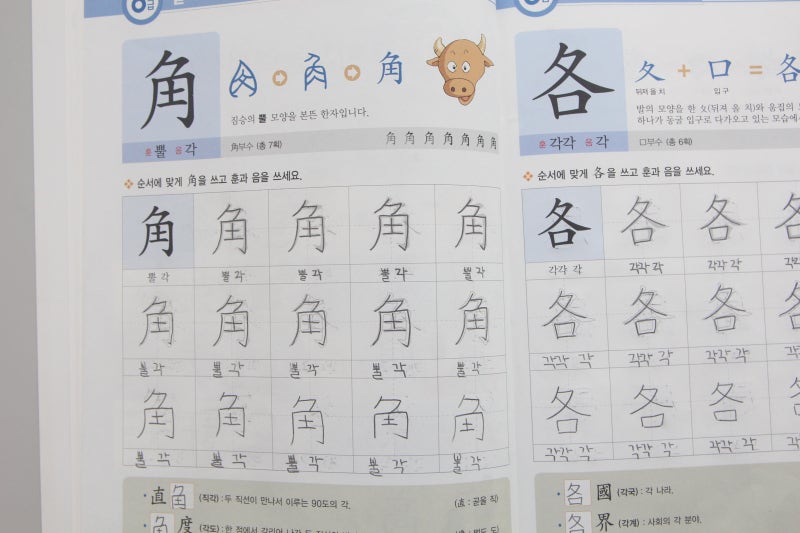 6급
角
훈 뿔 음 각
角
짐승의 뿔 모양을 본뜬 한자입니다.
角부수 (총 7획)
角 角 角 角 角 角 角
순서에 맞게 角을 쓰고 훈과 음을 쓰세요.
角 角 角 角 角
뿔 각 뿔 각 뿔 각 뿔 각 뿔 각
角 角 角 角 角
뿔 각 뿔 각 뿔 각 뿔 각 뿔 각
角 角 角 角 角
뿔 각 뿔 각 뿔 각 뿔 각 뿔 각
· 直角 (직각) : 두 직선이 만나서 이루는 90도의 각. (直 : 곧을 직)
· 角度 (각도) : 한 점에서 갈리어 나간 두
各
훈 각각 음 각
夂 + 口 = 各
뒤져올 치 입 구
발의 모양을 한 夂(뒤져 올 치)와 움집의
하나가 동굴 입구로 다가오고 있는 모습에서
口부수 (총 6획)
순서에 맞게 各을 쓰고 훈과 음을 쓰세요.
各 各 各 各
각각 각 각각 각 각각 각 각각
各 各 各 各
각각 각 각각 각 각각 각 각
各 各 各 各
각각 각 각각 각 각각 각 각
· 各國 (각국) : 각 나라.
· 各界 (각계) : 사회의 각 분야.